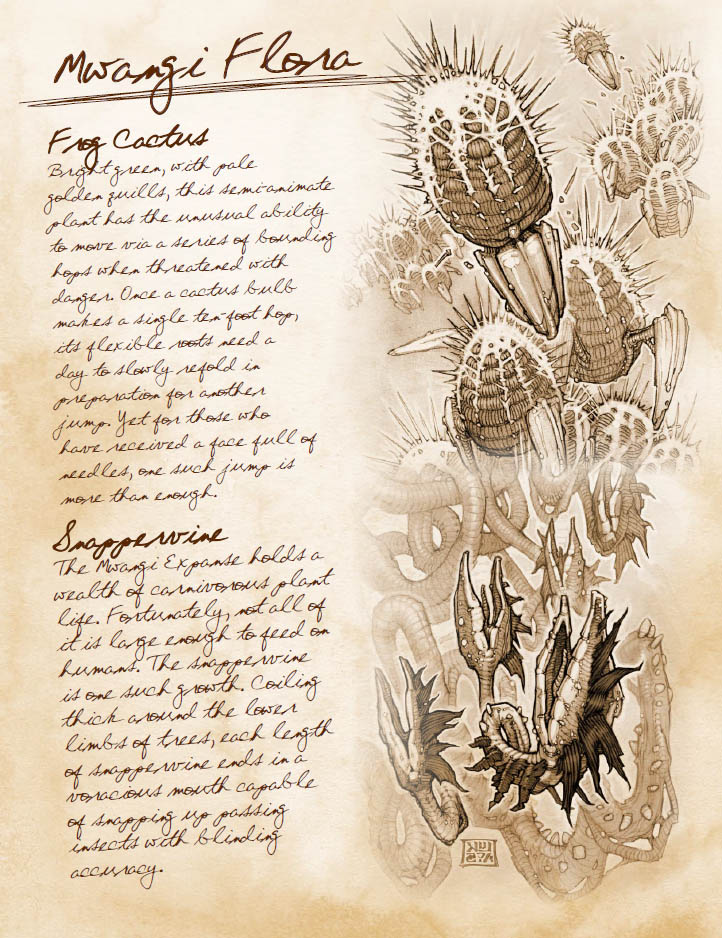 Mwangi Flora
Frog Cactus
Bright green, with pale
golden quills, this semi-animate
plant has the unusual ability
to move via a series of bounding
hops when threatened with
danger. Once a cactus bulb
makes a single ten-foot hop,
its flexible roots need a
day to slowly refold in
preparation for another
jump. Yet for those who
have received a face full of
needles, one such jump is
more than enough.
Snappervine
The Mwangi Expanse holds a
wealth of carnivorous plant
life. Fortunately, not all of
it is large enough to feed on
humans. The snappervine
is one such growth. Coiling
thick around the lower
limbs of trees, each length
of snappervine ends in a
voracious mouth capable
of snapping up passing
insects with blinding
accuracy.